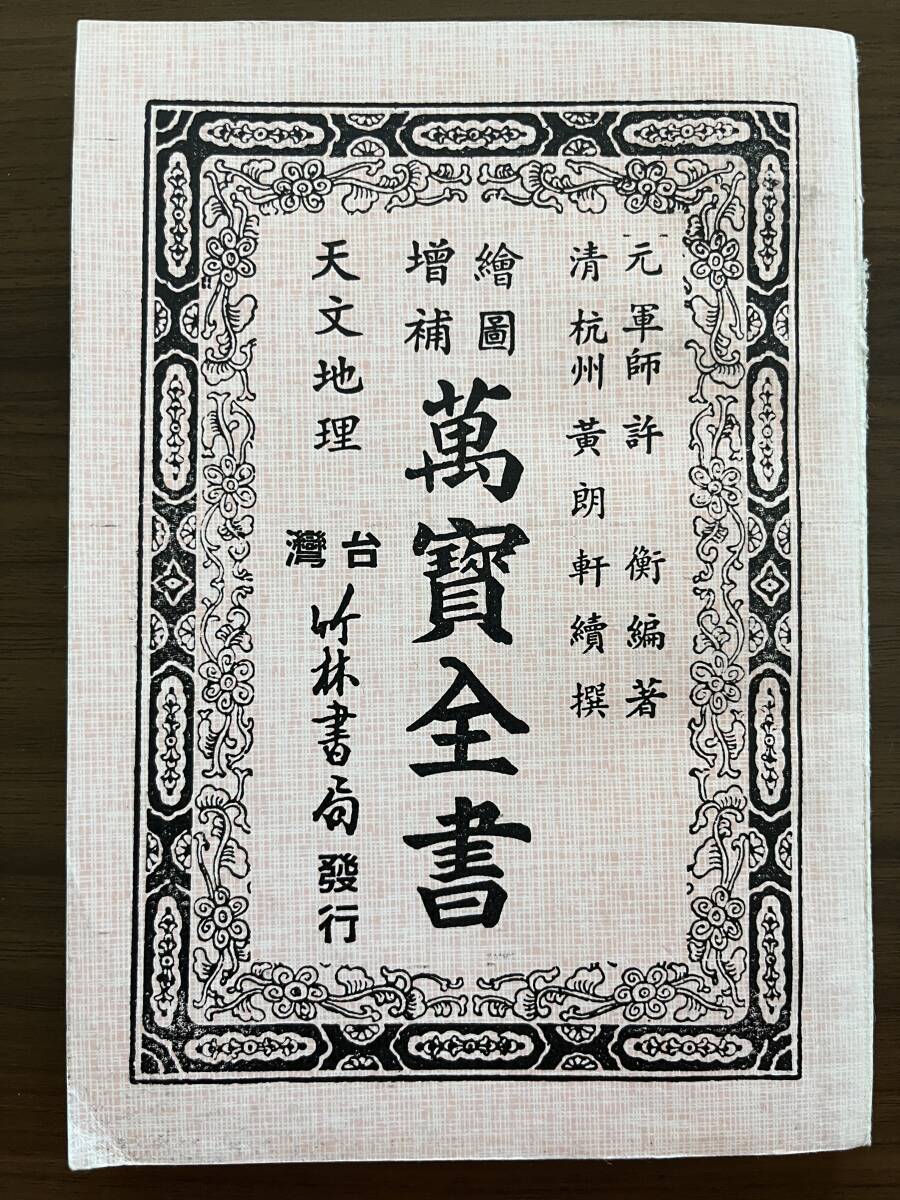 元軍師許衡編著
清杭州黃朗軒續撰
繪圖
增補
萬寳全書
天文地理
台灣
竹林書局
發行